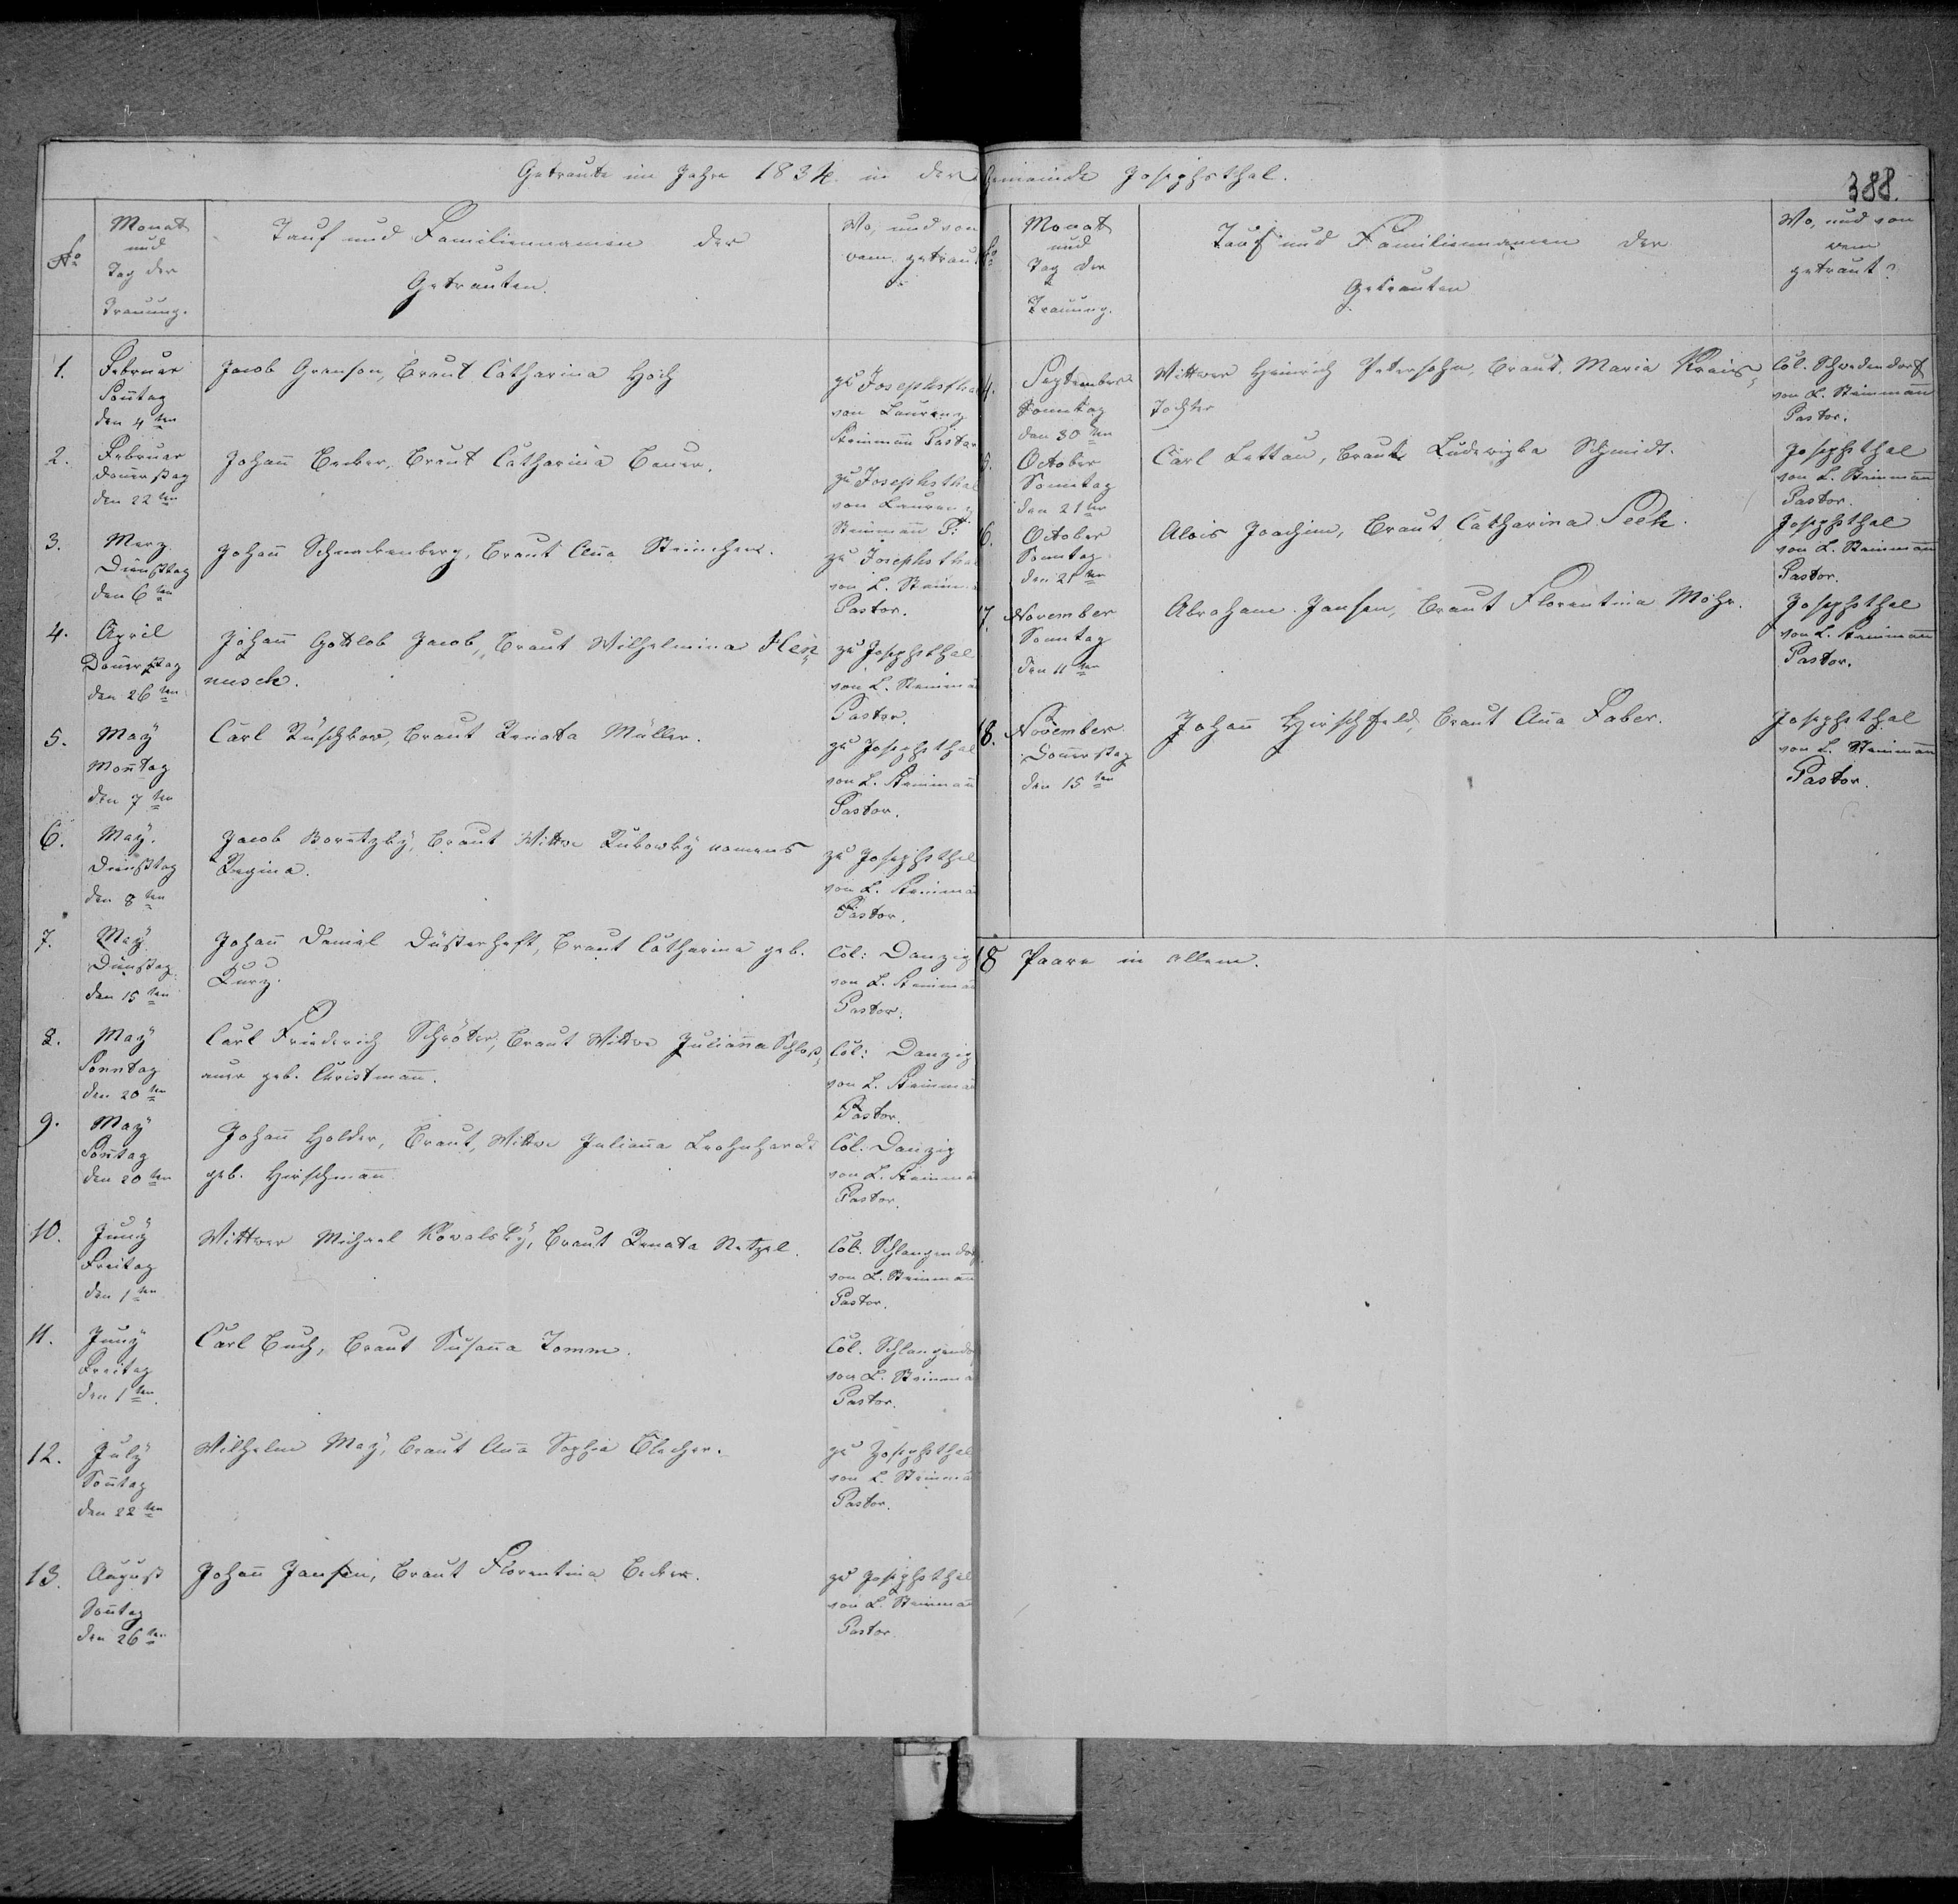 Getraute im Jahre 1834. in der Gemeinde Josephsthal.
388.
No
Monat
und
Tag der
Trauung.
Tauf und Familiennamen der
Getrauten.
Wo, und von
wem getraut
1.
Februar
Son̄tag
den 4ten
Jacob Granson, Braut Catharina Hoch
zu Josephstha
von Laurenz
Steinman̄ Pastor
2.
Februar
Don̄erstag
den 22ten
Johan̄ Becker, Braut Catharina Bauer.
zu Josephsthal
von Laurenz
Steinman̄ P:
3.
Merz
Dienstag
den 6ten
Johan̄ Schnackenberg, Braut An̄a
zu Josephsthal
von L. Steinm
Pastor.
4.
April
Don̄erstag
den 26ten
Johan̄ Gottlob Jacob, Braut Wilhelmina Hen̄
nusch.
zu Josephsthal
von L. Steinma
Pastor.
5.
May
Mon̄tag
den 7ten
Carl Ruschkow, Braut Renata Müller.
zu Josephsthal
von L. Steinman̄
Pastor.
6.
May.
Dienstag
den 8ten
Jacob Boretzky, Braut Wittwe Rukowky namens
Regina.
zu Josephsthal
von L. Steinma
Pastor.
7.
May
Dienstag
den 15ten
Johan̄ Daniel Düsterhoft, Braut Catharina geb.
Kurz.
Col: Danzig
von L. Steinma
Pastor.
8.
May
Sonntag
den 20ten
Carl Friederich Schröter, Braut Wittwe Julian̄a Schloß
auer geb. Christman̄.
Col: Danzig
von L. Steinma
Pastor.
9.
May
Son̄tag
den 20ten
Johan̄ Holder, Braut, Wittwe Julian̄a Leohnhardt
geb. Hirschman̄
Col: Danzig
von L. Steinma
Pastor.
10.
Juny
Freitag
den 1ten
Wittwer Michael Kowalsky, Braut Renata Netzel.
Col. Schlangendorf
von L. Steinman̄
Pastor.
11.
Juny
Freitag
den 1ten
Carl Buch, Braut Susan̄a Tomm.
Col. Schlangendo
von L. Steinma
Pastor.
12.
July
Son̄tag
den 22ten
Wilhelm May, Braut An̄a Sophia Blecher.
zu Josephsthal
von L. Steinma
Pastor.
13.
August
Son̄tag
den 26ten
Johan̄ Jansen, Braut Florentina Becker.
zu Josephsthal
von L. Steinman
Pastor
No
Monat
und
Tag der
Trauung.
Tauf und Familiennamen der
Getrauten
Wo, und von
wem
getraut?
4.
September
Sonntag
den 30ten
Wittwer Heinrich Petersohn, Braut. Maria Kreis
Tochter
Col. Schwedendorf
von L. Steinman̄
Pastor.
5.
October
Sonntag
den 21ten
Carl Lettau, Braut Ludwigka Schmidt.
Josephsthal
von L. Steinman̄
Pastor.
6.
October
Sonntag
den 21ten
Alois Joachim, Braut Catharina Seek.
Josephsthal
von L. Steinman̄
Pastor.
17.
November
Sonntag
den 11ten
Abraham Jansen, Braut Florentina Mohr.
Josephsthal
von L. Steinman̄
Pastor.
18.
November
Don̄erstag
den 15ten
Johan̄ Hirschfeld, Braut An̄a Faber.
Josephsthal
von L. Steinman̄
Pastor.
18 Paare in allem.